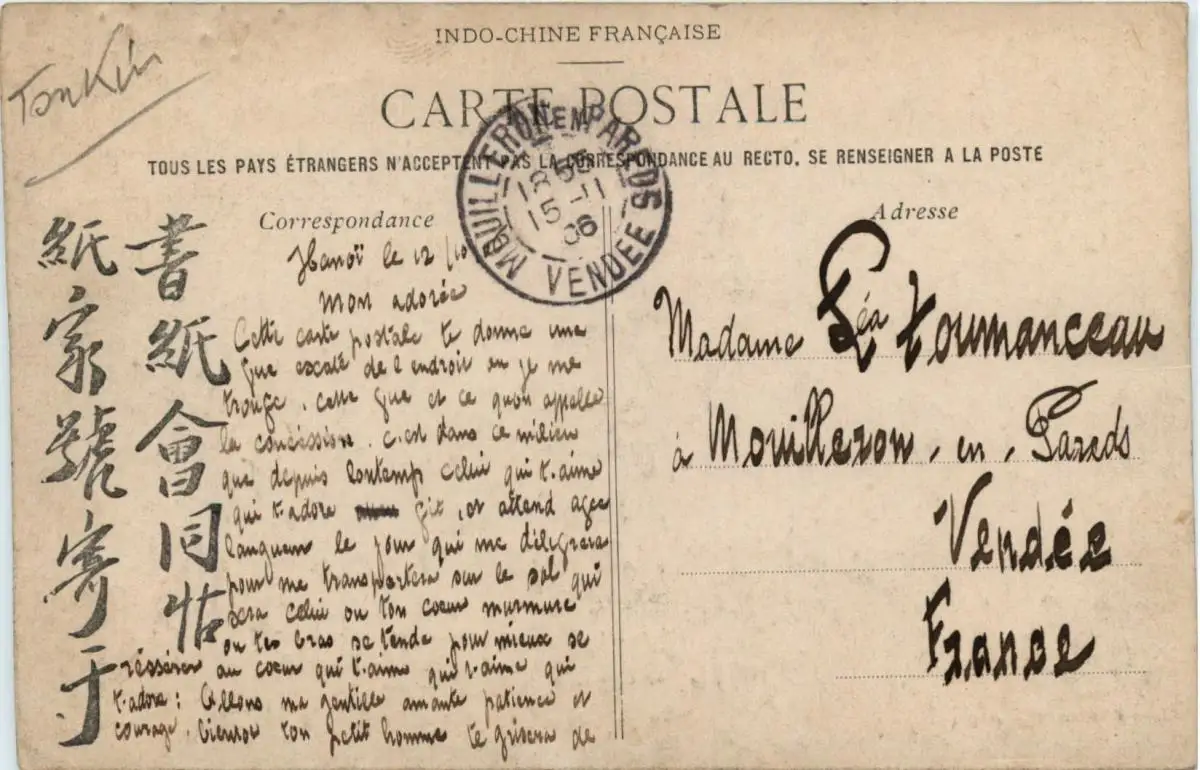 Tonkin
INDO-CHINE FRANÇAISE
CARTE POSTALE
TOUS LES PAYS ÉTRANGERS N'ACCEPTENT PAS LA CORRESPONDANCE AU RECTO. SE RENSEIGNER A LA POSTE
MOUILLERON EN PAREDS
18 55
15 -11
06
VENDEE
Correspondance
Hanoï le 12/10
Mon adorée
Cette carte postale te donne une
vue exacte de l endroit ou je me
trouve, cette vue et ce quon appelle
la concession. c'est dans ce milieu
que depuis lontemp celui qui t'aime
qui t'adore vit, et attend avec
langueur le jour qui me délivrera
pour me transportera sur le sol qui
sera celui ou ton coeur murmure
ou tes bras se tende pour mieux se
résserer au coeur qui t'aime qui t'aime qui
t'adore : Allons ma gentille amante patience et
courage, bientot ton petit homme te grisera de
書紙會同帖
紙家號寄于
Adresse
Madame Léa Toumanceau
à Mouilleron, en, Pareds
Vendée
France